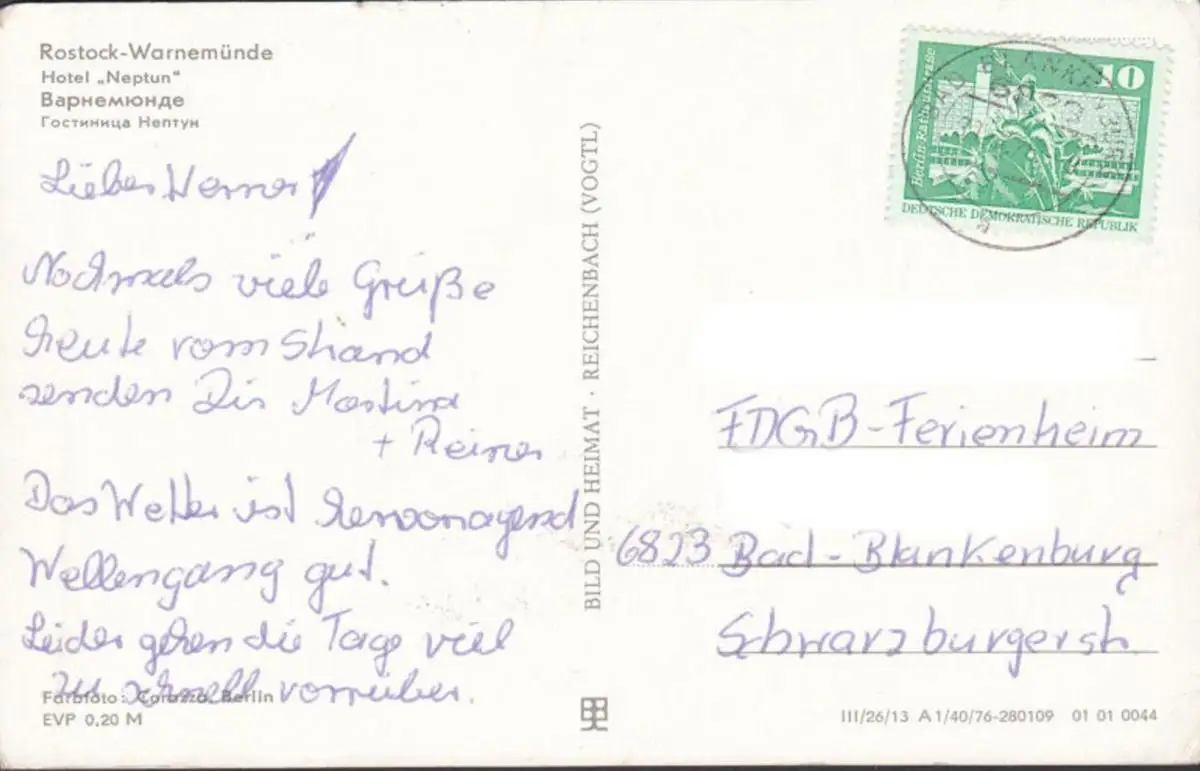 Rostock-Warnemünde
Hotel „Neptun“
Варнемюнде
Гостиница Нептун
Lieber Werner!
Nochmals viele Grüße
heute vom Strand
senden Dir Martina
+ Reiner
Das Wetter ist hervorragend
Wellengang gut.
Leider gehen die Tage viel
zu schnell vorrüber.
Farbfoto: Corazza, Berlin
EVP 0,20 M
BILD UND HEIMAT · REICHENBACH (VOGTL)
10
Berlin, Rathausstraße
DEUTSCHE DEMOKRATISCHE REPUBLIK
FDGB-Ferienheim
6823 Bad-Blankenburg
Schwarzburgerstr.
III/26/13 A 1/40/76-280109 01 01 0044